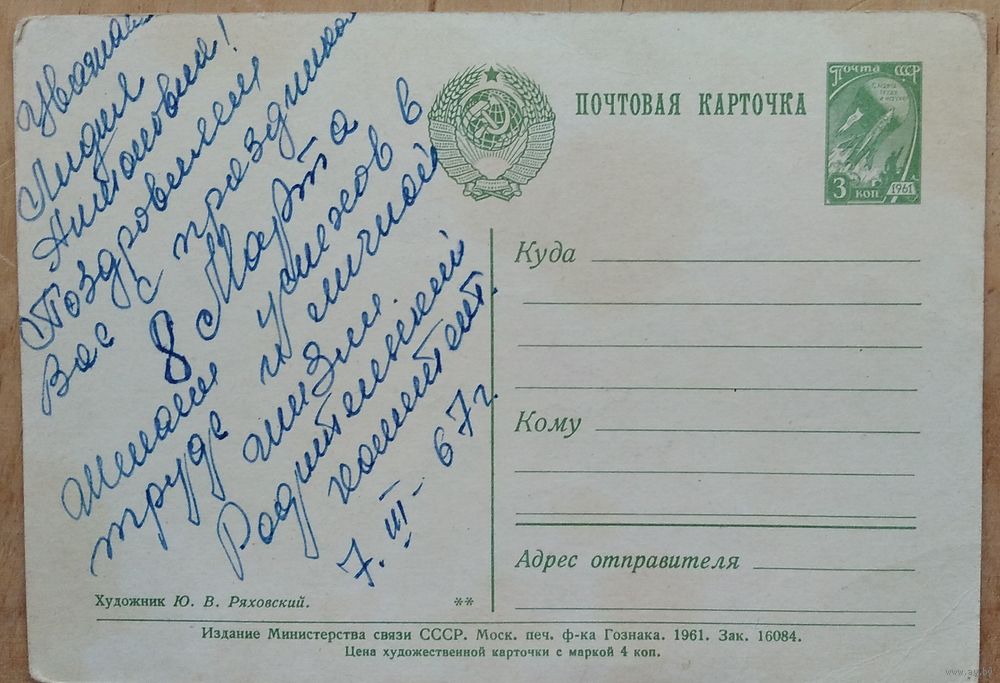 Уважаемая
Лидия
Антоновна!
Поздровляем
Вас с праздником
8 Марта
желаем успехов в
труде и личной
жизни.
Родительский
комитет.
7. III - 67 г.
ПОЧТОВАЯ КАРТОЧКА
Почта СССР
3 коп 1961
Куда
Кому
Адрес отправителя
Художник Ю. В. Ряховский.
**
Издание Министерства связи СССР. Моск. печ. ф-ка Гознака. 1961. Зак. 16084.
Цена художественной карточки с маркой 4 коп.
www.ay.by